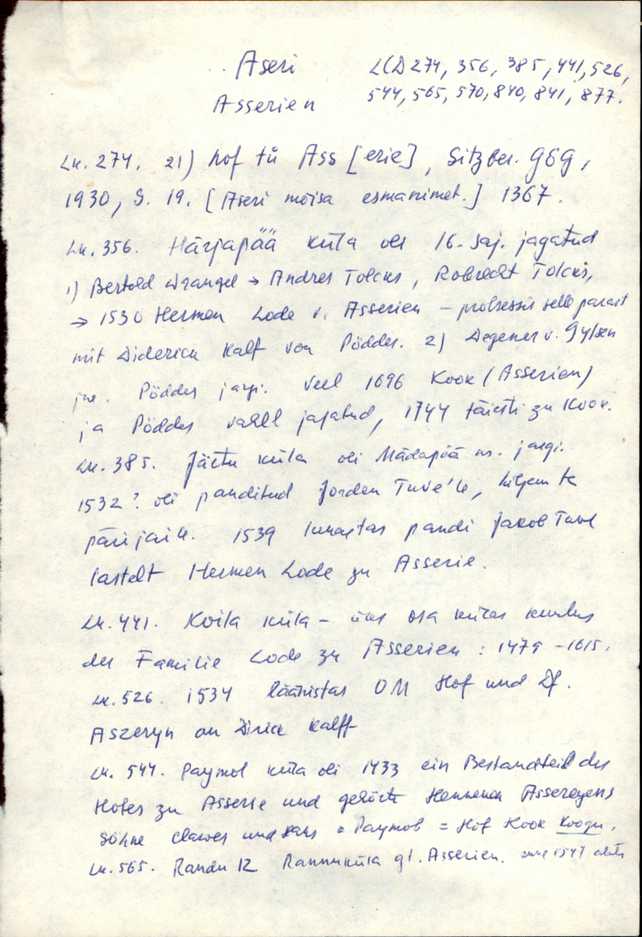 Aseri LCD 274, 356, 385, 441, 526,
Asserien 544, 565, 570, 840, 841, 877.
Lk. 274. 21) hof tů Ass [erie], Sitzber. GEG,
1930, S. 19. [Aseri mõisa esmanimet.] 1367.
Lk. 356. Härjapää küla oli 16. saj. jagatud
1) Bertold Wrangel → Andres Tolcks, Robrecht Tolcks,
→ 1530 Hermen Lode v. Asserien – protsessis selle pärast
mit Diderich Kalf von Pöddes. 2) Degener v. Gylsen
Pöddes järgi. Veel 1696 Kook (Asserien)
ja Pöddes vahel jagatud, 1744 täiesti zu Kook.
Lk. 385. küla oli Mädapää m. järgi.
1532? oli panditud Jorden Tuve'le, hiljem ta
pärijaile. 1539 lunastas pandi Jakob Tuve
lastelt Hermen Lode zu Asserie.
Lk. 441. Koila küla – üks osa külas kuulus
der Familie Lode zu Asserien: 1479 – 1615.
Lk. 526. 1534 läänistas OM Hof und Df.
Aszeryn an Dirick Kalff
Lk. 544. Paymol küla oli 1433 ein Bestandteil des
Hofes zu Asserie und gehörte Hennenen Assereyens
Söhne Clawes und Hans = Paymob = Hof Kook Koogu.
Lk. 565. Randu 12 Rannuküla gt. Asserien. 1547